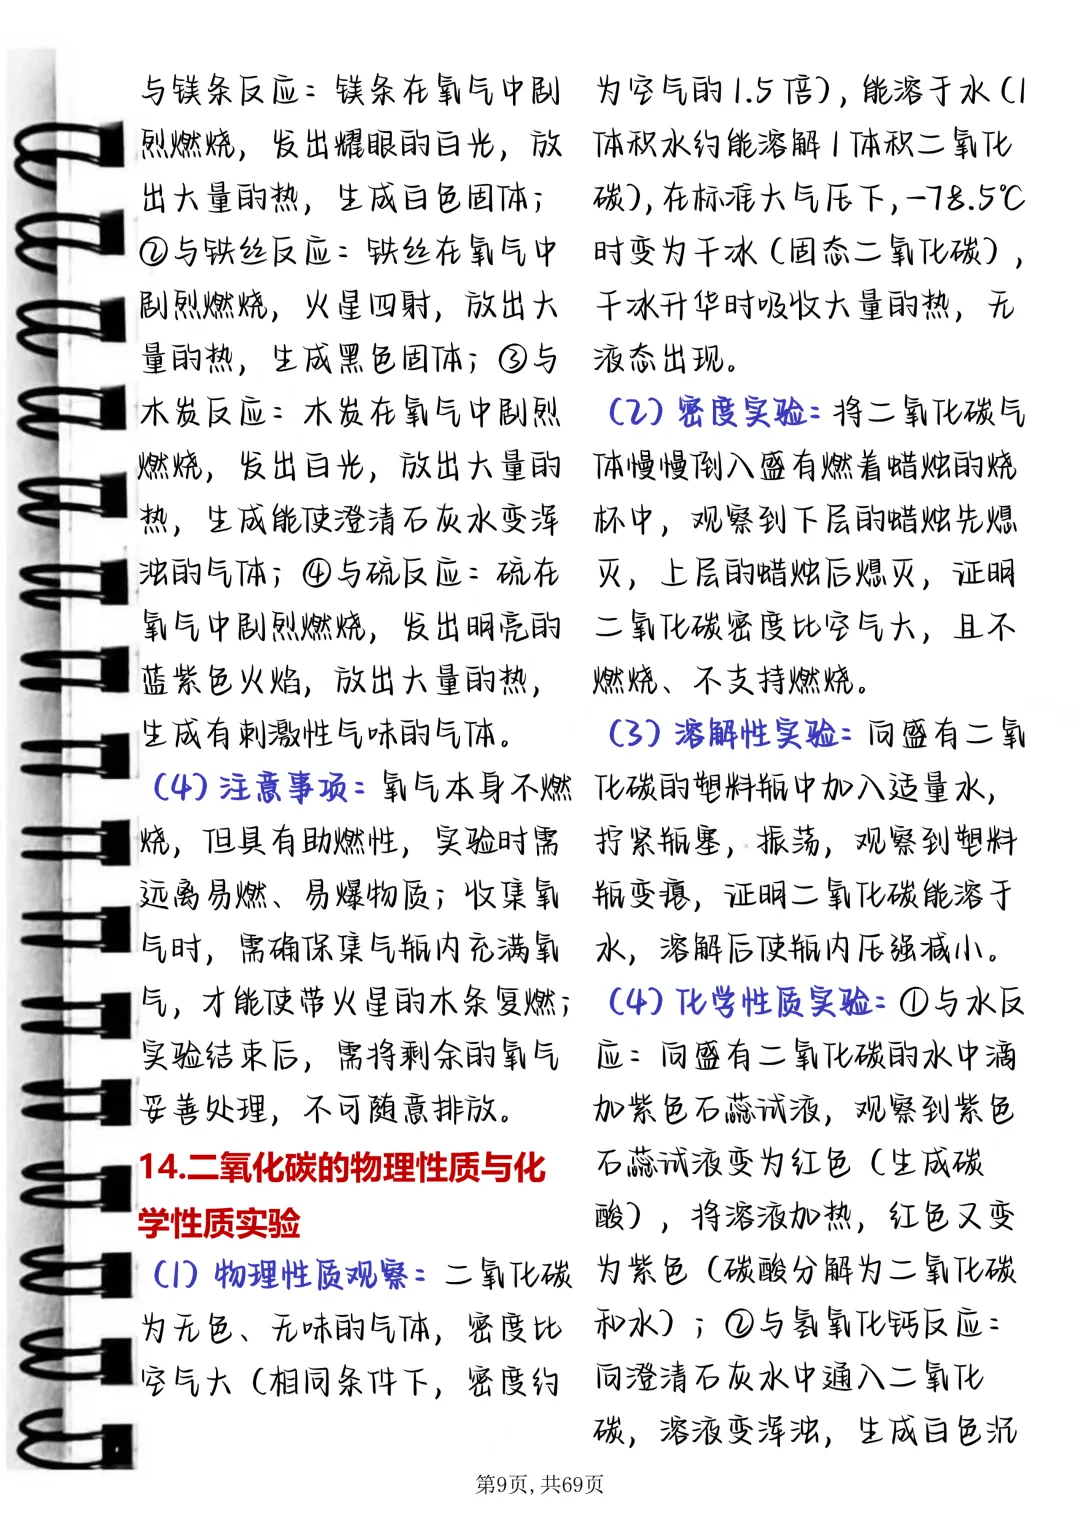 与镁条反应：镁条在氧气中剧
烈燃烧，发出耀眼的白光，放
出大量的热，生成白色固体；
②与铁丝反应：铁丝在氧气中
剧烈燃烧，火星四射，放出大
量的热，生成黑色固体；③与
木炭反应：木炭在氧气中剧烈
燃烧，发出白光，放出大量的
热，生成能使澄清石灰水变浑
浊的气体；④与硫反应：硫在
氧气中剧烈燃烧，发出明亮的
蓝紫色火焰，放出大量的热，
生成有刺激性气味的气体。
（4）注意事项：氧气本身不燃
烧，但具有助燃性，实验时需
远离易燃、易爆物质；收集氧
气时，需确保集气瓶内充满氧
气，才能使带火星的木条复燃；
实验结束后，需将剩余的氧气
妥善处理，不可随意排放。
14.二氧化碳的物理性质与化
学性质实验
（1）物理性质观察：二氧化碳
为无色、无味的气体，密度比
空气大（相同条件下，密度约
为空气的1.5倍），能溶于水（1
体积水约能溶解1体积二氧化
碳），在标准大气压下，-78.5℃
时变为干冰（固态二氧化碳），
干冰升华时吸收大量的热，无
液态出现。
（2）密度实验：将二氧化碳气
体慢慢倒入盛有燃着蜡烛的烧
杯中，观察到下层的蜡烛先熄
灭，上层的蜡烛后熄灭，证明
二氧化碳密度比空气大，且不
燃烧、不支持燃烧。
（3）溶解性实验：向盛有二氧
化碳的塑料瓶中加入适量水，
拧紧瓶塞，振荡，观察到塑料
瓶变瘪，证明二氧化碳能溶于
水，溶解后使瓶内压强减小。
（4）化学性质实验：①与水反
应：向盛有二氧化碳的水中滴
加紫色石蕊试液，观察到紫色
石蕊试液变为红色（生成碳
酸），将溶液加热，红色又变
为紫色（碳酸分解为二氧化碳
和水）；②与氢氧化钙反应：
向澄清石灰水中通入二氧化
碳，溶液变浑浊，生成白色沉
第9页，共69页